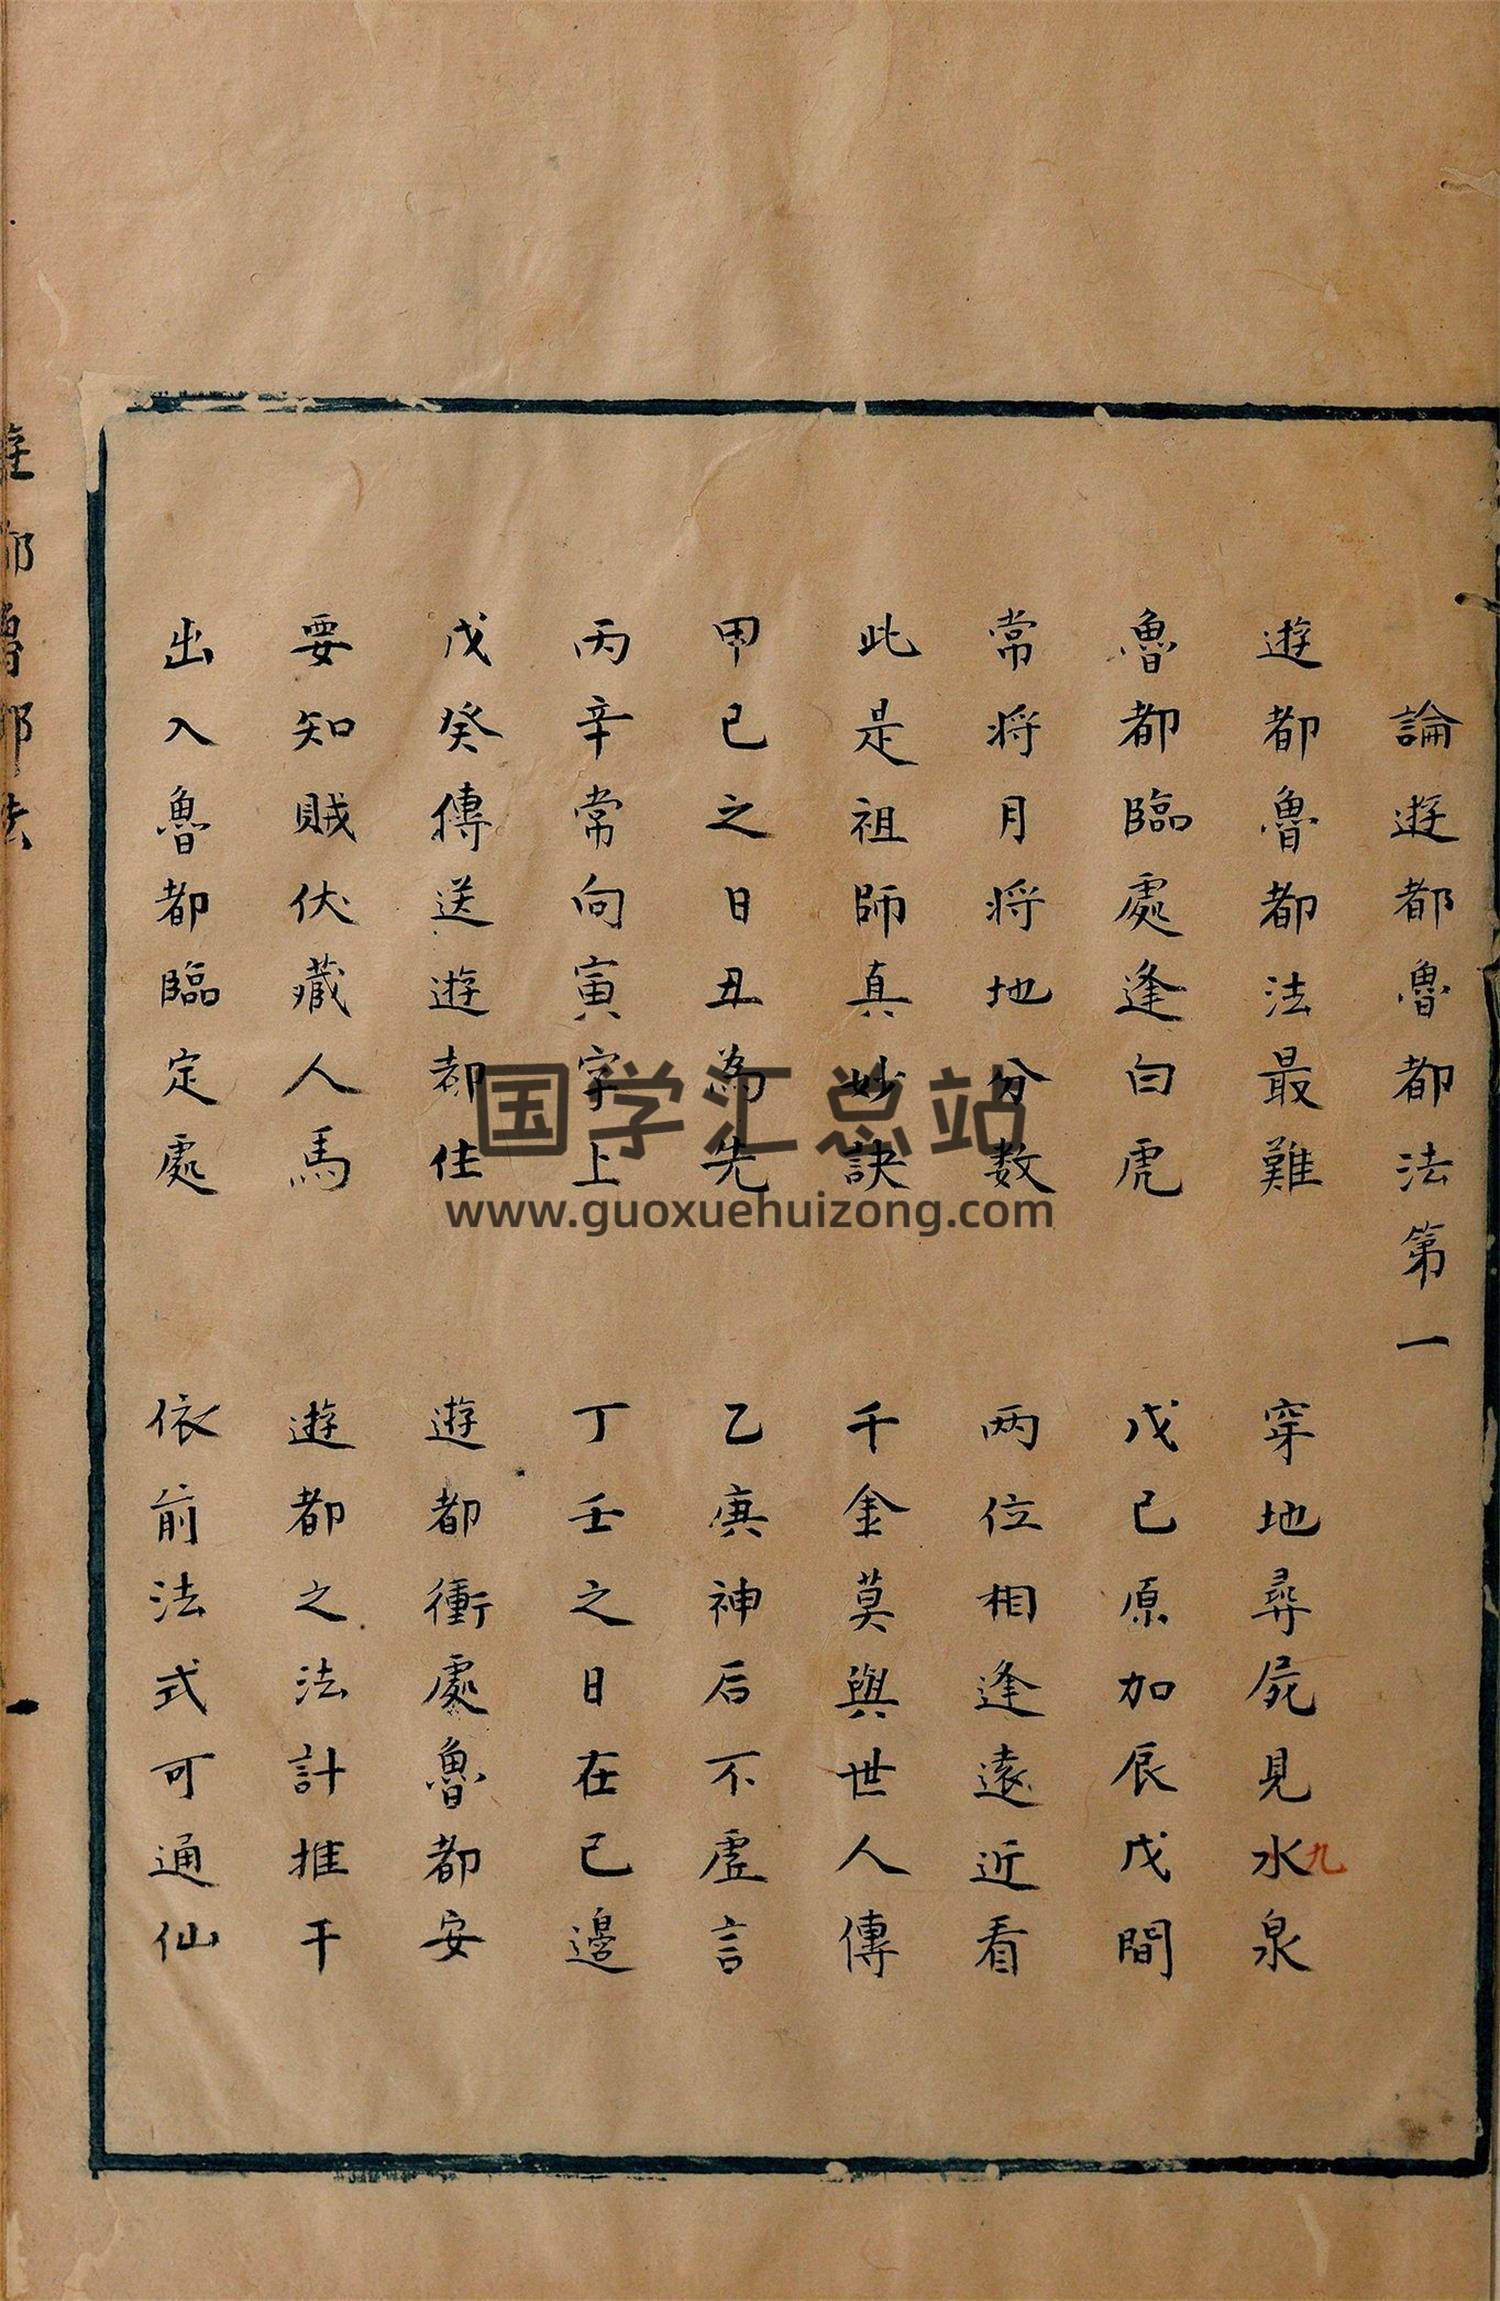 論遊都魯都法第一
遊都魯都法最難　穿地尋屍見水泉
九
魯都臨處逢白虎　戊己原加辰戊間
常将月将地分数　两位相逢遠近看
此是祖師真妙訣　千金莫與世人傳
甲已之日丑為先　乙庚神后不虚言
丙辛常向寅字上　丁壬之日在已邊
戊癸傳送遊都住　遊都衝處魯都安
要知賊伏藏人馬　遊都之法計推干
出入魯都臨定處　依前法式可通仙
遊都魯都法
国学汇总站
www.guoxuehuizong.com